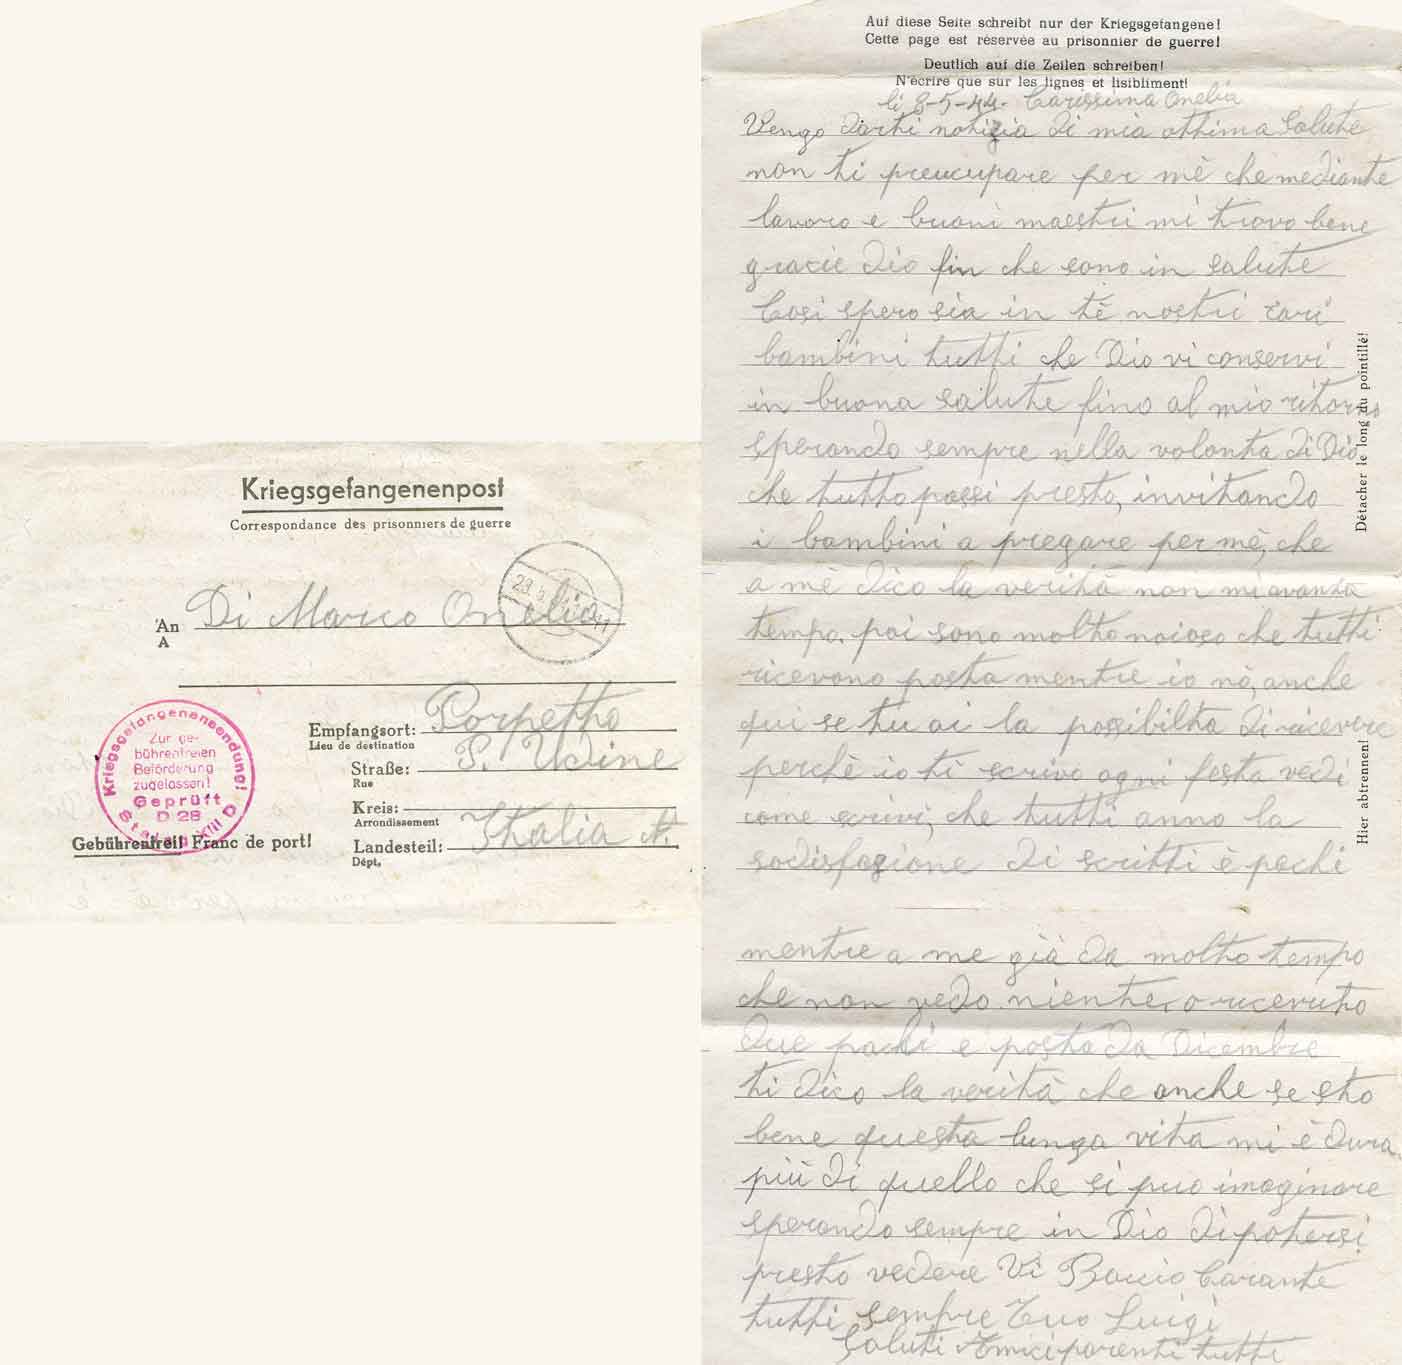 Kriegsgefangenenpost
Correspondance des prisonniers de guerre
28.
An
A
Di Marco Onelia
Empfangsort: Porpetto
Lieu de destination
Straße: P. Udine
Rue
Kreis:
Arrondissement
Landesteil: Ithalia
Dépt.
Kriegsgefangenensendung!
Zur ge-
bührenfreien
Beförderung
zugelassen!
Geprüft
D 28
Stalag XVII
Gebührenfrei! Franc de port!
Auf diese Seite schreibt nur der Kriegsgefangene!
Cette page est réservée au prisonnier de guerre!
Deutlich auf die Zeilen schreiben!
N'écrire que sur les lignes et lisibliment!
li 8-5-44. Carissima Onelia
Vengo darti notizia di mia otthima Salute
non ti preucupare per mè che mediante
lavoro e buoni maestri mi trovo bene
gracie dio fin che sono in salute
Cosi spero sia in tè nostri cari
bambini tutti che Dio vi conservi
in buona salute fino al mio ritorno
sperando sempre nella volonta di Dio
che tutto passi presto, invitando
i bambini a pregare per mè, che
a mè dico la verità non mi avanza
tempo, poi sono molto noioso che tutti
ricevono posta mentre io nò, anche
qui se tu ai la possibilta di ricevere
perchè io ti scrivo ogni festa vedi
come scrivi, che tutti anno la
sodisfazione di scritti è pachi
mentre a me già da molto tempo
che non vedo niente, o ricevuto
due pachi e posta da Dicembre
ti dico la verità che anche se sto
bene questa lunga vita mi è dura
più di quello che si puo imaginare
sperando sempre in Dio di potersi
presto vedere Vi Baccio Carante
tutti sempre Tuo Luigi
Saluti Amici parenti tutti
Détacher le long du pointillé!
Hier abtrennen!